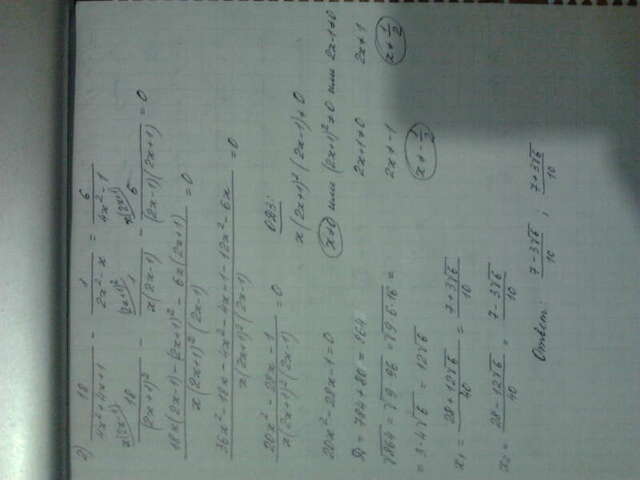 2) 18/(4x²+4x+1) - 1/(2x²-x) = 6/(4x²-1)
18/(2x+1)² - 1/x(2x-1) - 6/(2x-1)(2x+1) = 0
18x(2x-1)-(2x+1)²-6x(2x+1) / x(2x+1)²(2x-1) = 0
36x²-18x-4x²-4x-1-12x²-6x / x(2x+1)²(2x-1) = 0
20x²-28x-1 / x(2x+1)²(2x-1) = 0
ОДЗ:
x(2x+1)²(2x-1)≠0
x≠0 или (2x+1)²≠0 или 2x-1≠0
2x+1≠0 2x≠1
2x≠-1 x≠1/2
x≠-1/2
20x²-28x-1=0
D = 784+80 = 864
√864 = √9·96 = √9·6·16 =
= 3·4√6 = 12√6
x₁ = (28+12√6)/40 = (7+3√6)/10
x₂ = (28-12√6)/40 = (7-3√6)/10
Ответ: (7-3√6)/10 ; (7+3√6)/10